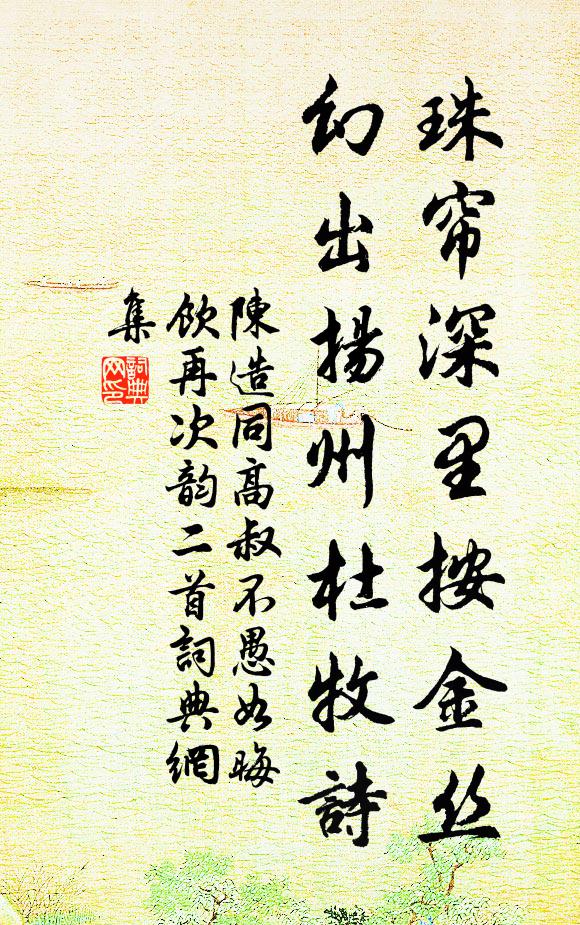 珠帘深里按金丝
幻出揚州杜牧詩
陳造同高叔不愚如晦
飲再次韵二首詞典網
集
詞典
网印